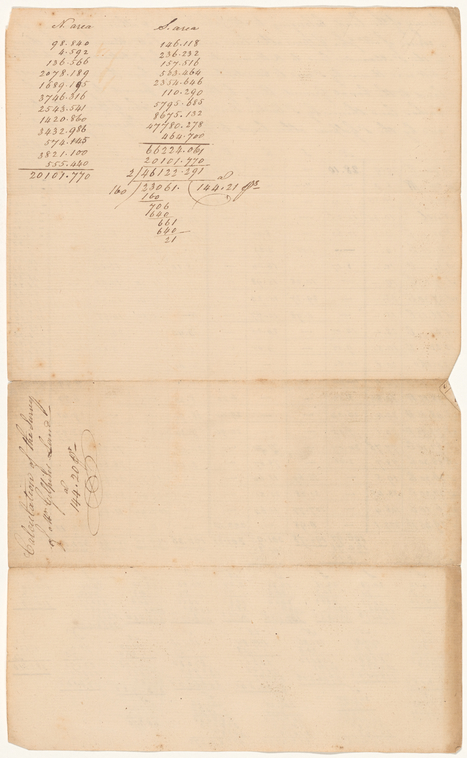 N. area
98.840
4.592
136.566
2078.189
1689.195
3746.316
2543.541
1420.860
3432.986
574.145
3821.100
555.440
20101.770
S. area
146.118
236.232
157.516
563.464
2354.646
110.290
5795.685
8675.132
47780.278
464.700
66224.061
20101.770
2/46122.291
160/23061.(144.21
160
706
640
661
640
21
Calculation of the Survey
of Mr Land
a
144.20